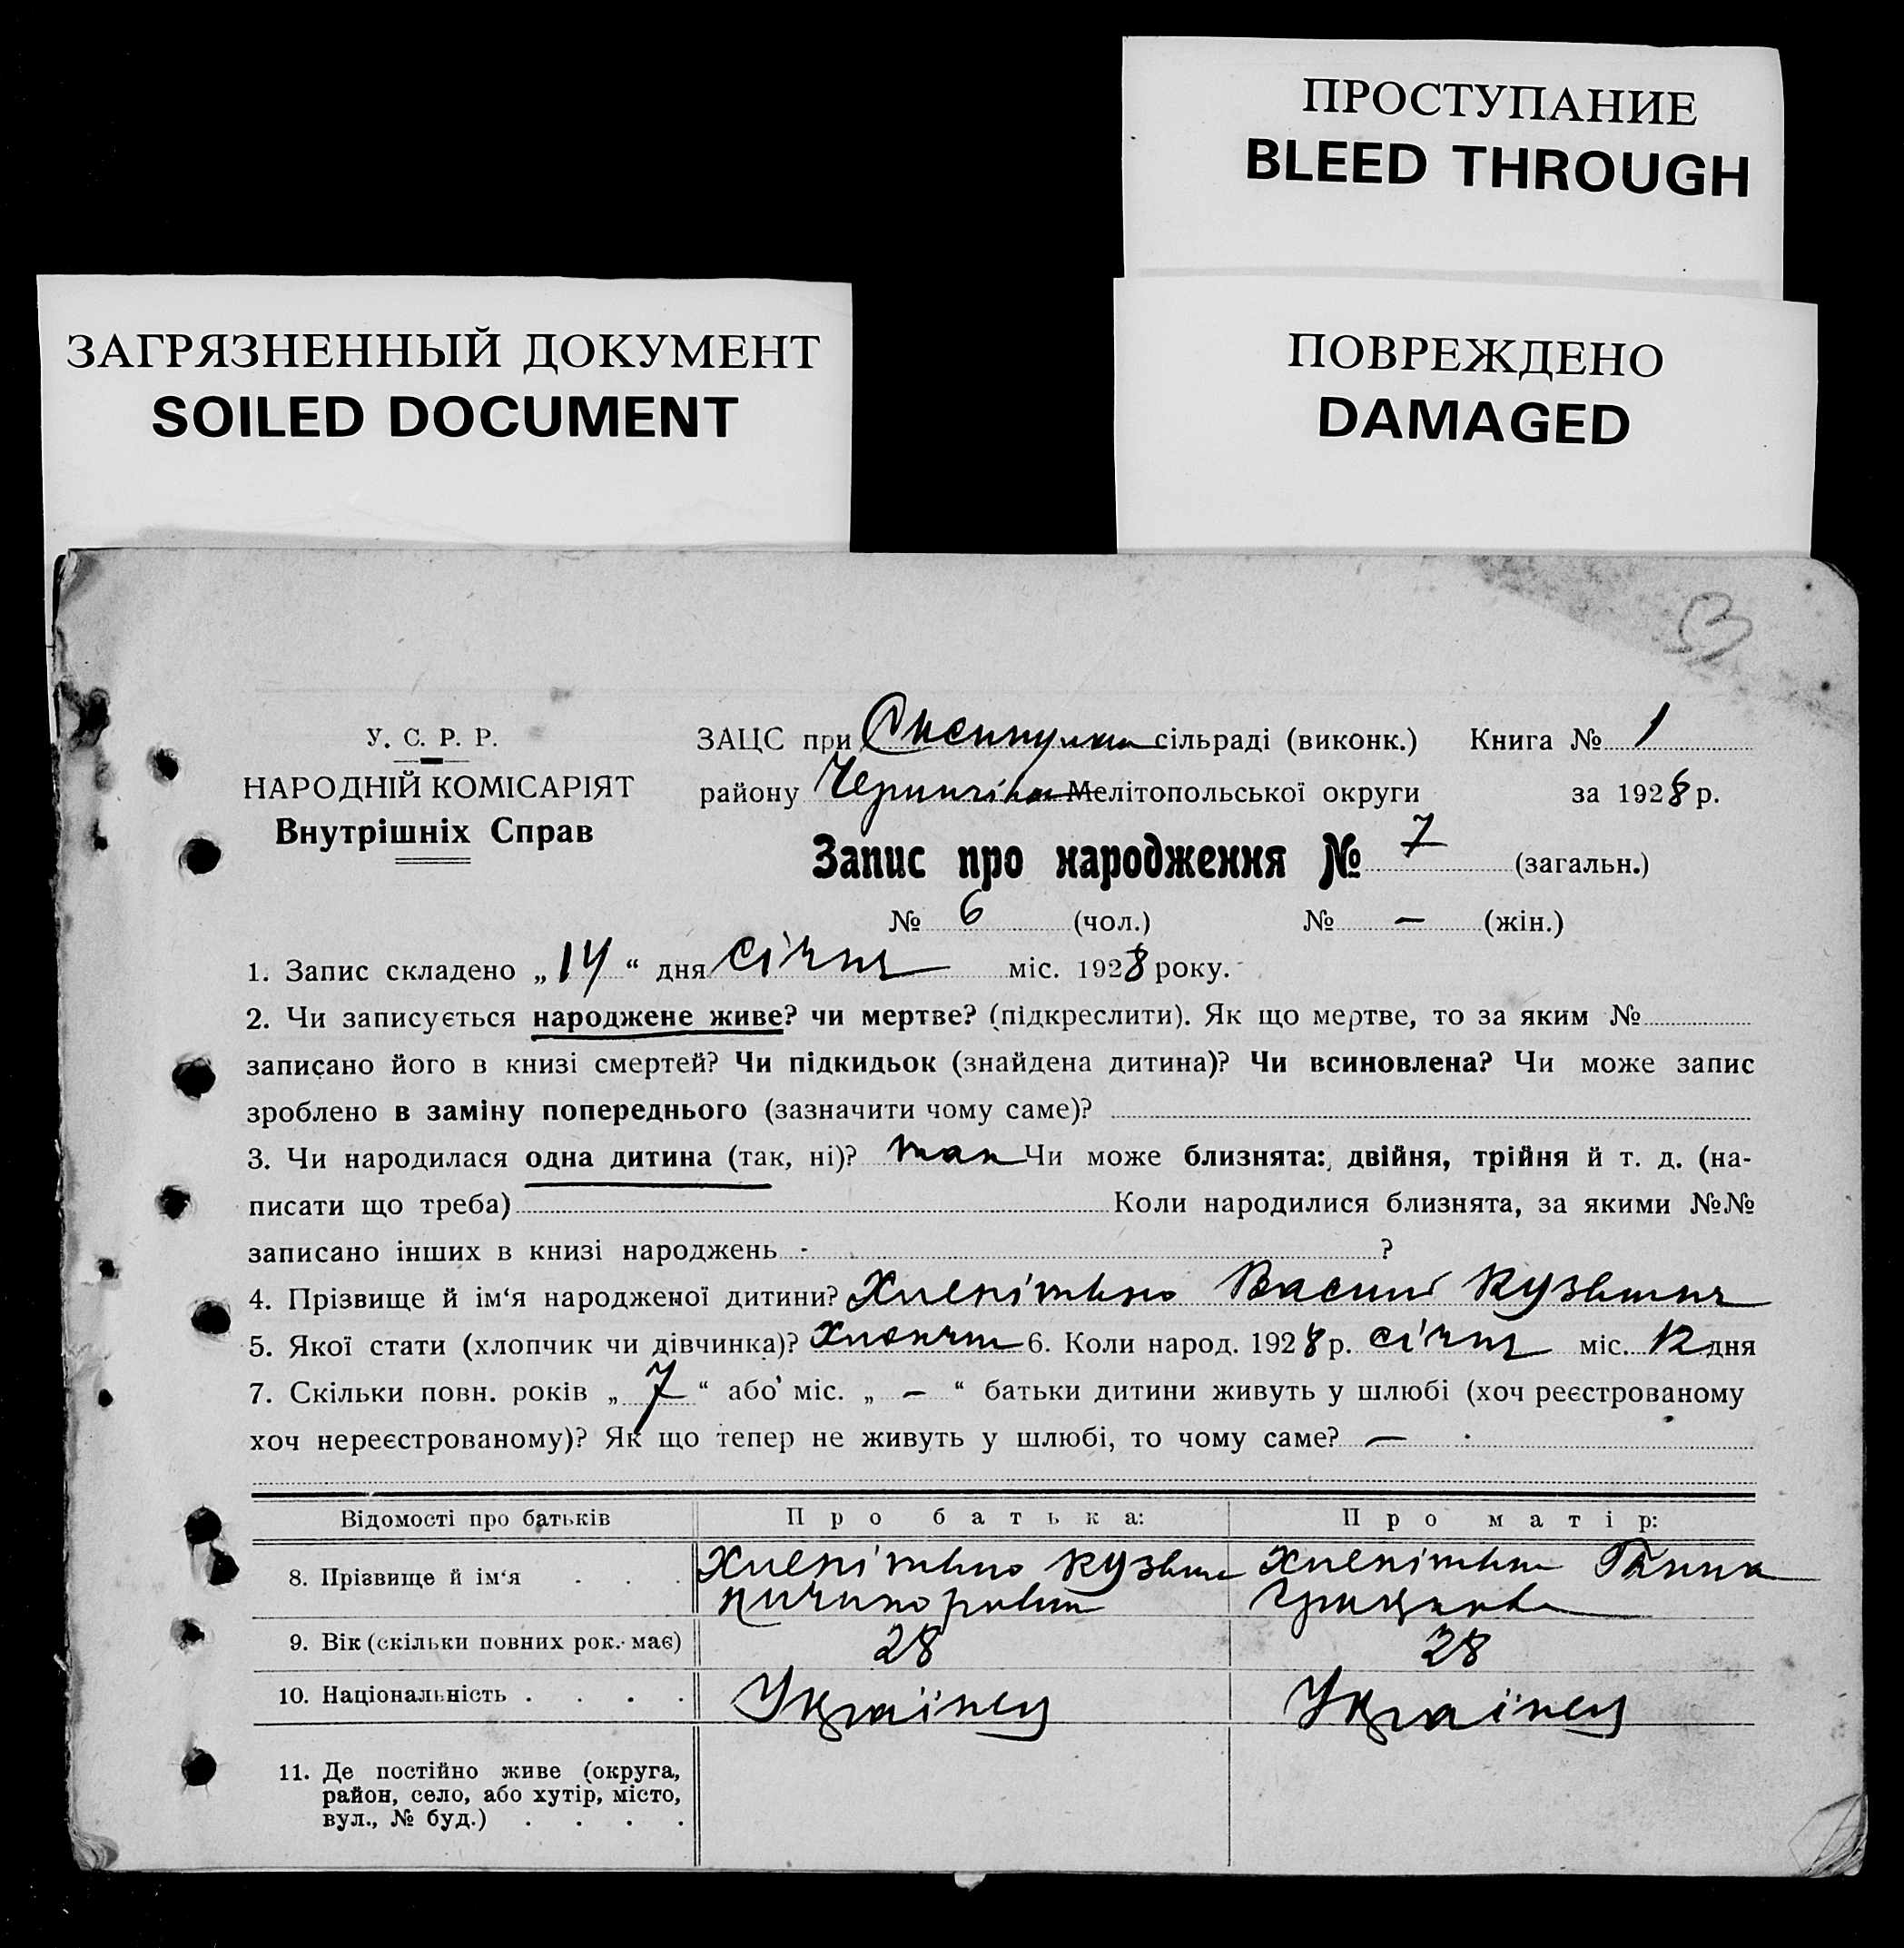 ПРОСТУПАНИЕ
BLEED THROUGH
ЗАГРЯЗНЕННЫЙ ДОКУМЕНТ
SOILED DOCUMENT
ПОВРЕЖДЕНО
DAMAGED
У. С. Р. Р.
НАРОДНІЙ КОМІСАРІЯТ
Внутрішніх Справ
ЗАЦС при сільраді (виконк.) Книга № 1
району Мелітопольської округи за 1928 р.
Запис про народження № 7 (загальн.)
№ 6 (чол.) № — (жін.)
1. Запис складено „14“ дня січня міс. 1928 року.
2. Чи записується народжене живе? чи мертве? (підкреслити). Як що мертве, то за яким №
записано його в книзі смертей? Чи підкидьок (знайдена дитина)? Чи всиновлена? Чи може запис
зроблено в заміну попереднього (зазначити чому саме)?
3. Чи народилася одна дитина (так, ні)? так Чи може близнята: двійня, трійня й т. д. (на-
писати що треба) Коли народилися близнята, за якими №№
записано інших в книзі народжень ?
4. Прізвище й ім‘я народженої дитини? Василь Кузьмич
5. Якої стати (хлопчик чи дівчинка)? Хлопчик 6. Коли народ. 1928 р. січня міс. 12 дня
7. Скільки повн. років „7“ або міс. „—“ батьки дитини живуть у шлюбі (хоч реєстрованому
хоч нереєстрованому)? Як що тепер не живуть у шлюбі, то чому саме? —
Відомості про батьків Про батька: Про матір:
8. Прізвище й ім‘я . . . Кузьма Ганна
9. Вік (скільки повних рок. має) 28 28
10. Національність . . . . Українец Українец
11. Де постійно живе (округа,
район, село, або хутір, місто,
вул., № буд.) . . . .